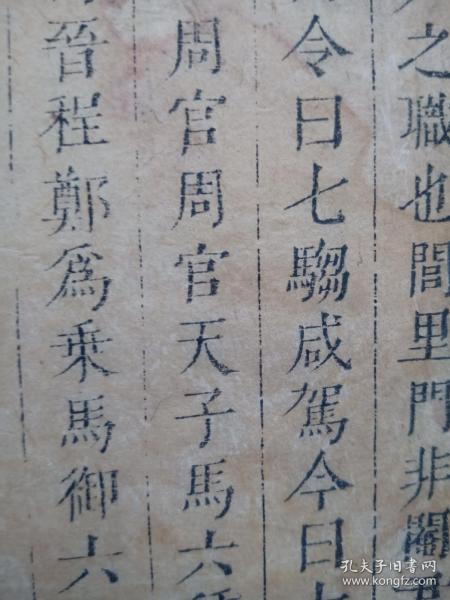 之職也閭里門非閹
令曰七騶咸駕今曰七
周官周官天子馬六
晉程鄭爲乗馬御六
孔夫子旧书网
www.kongfz.com